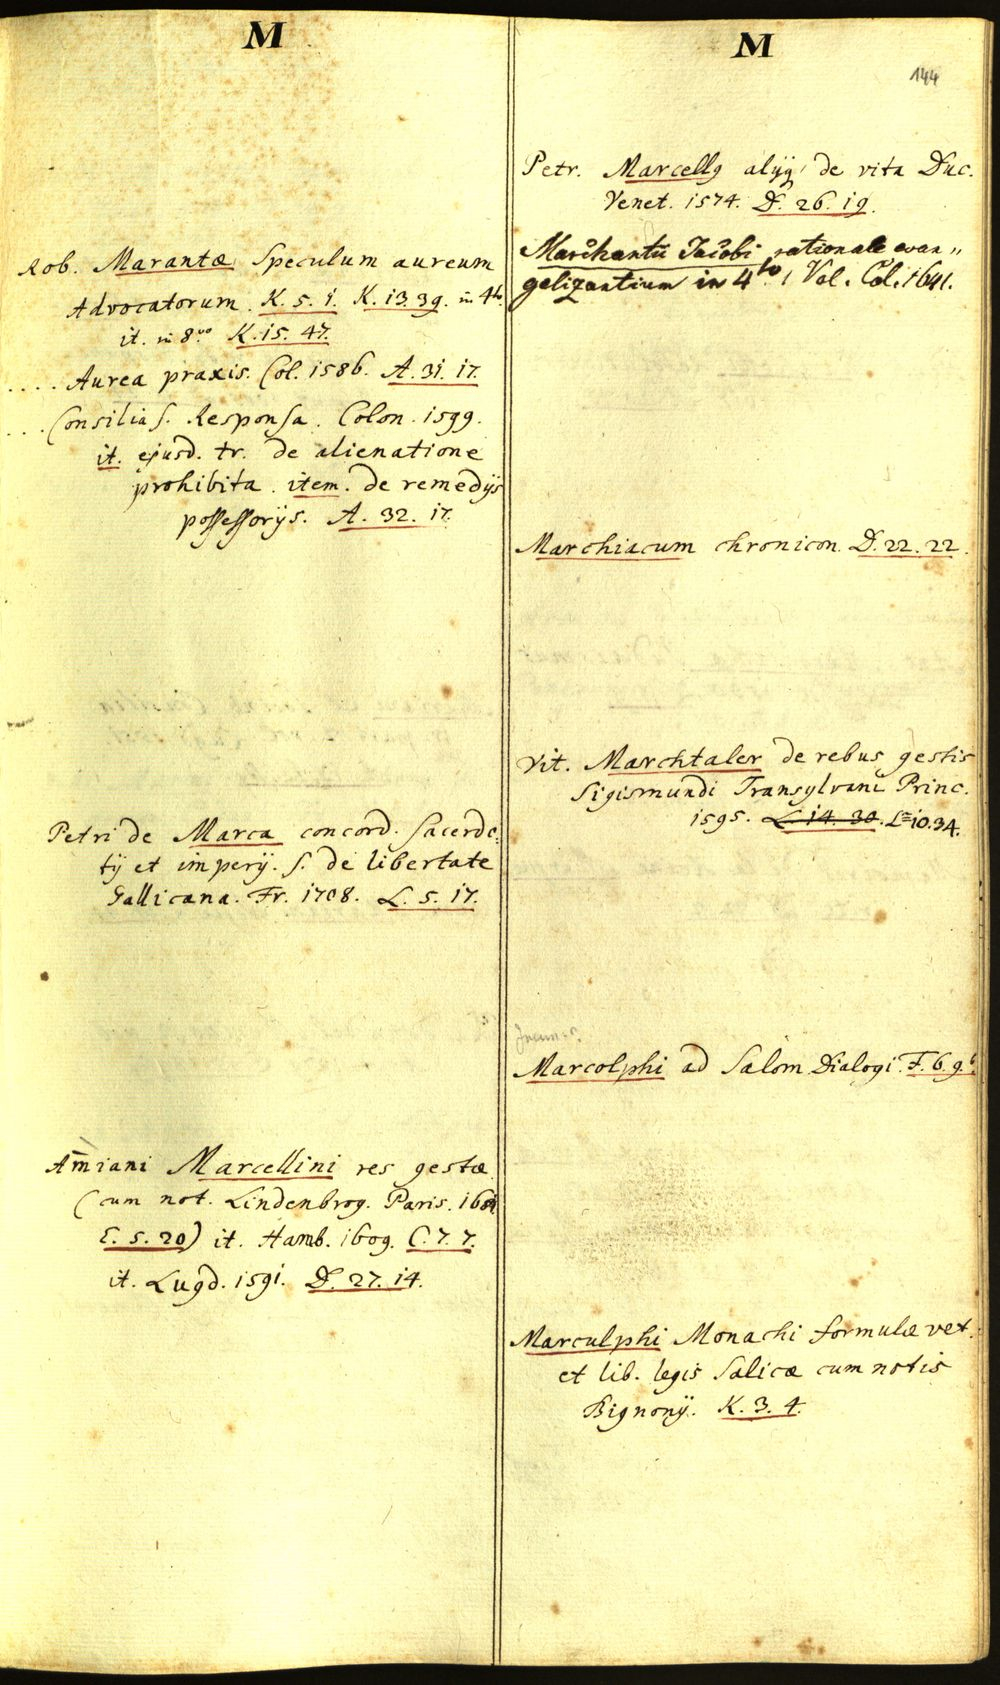 M
Rob. Marantæ Speculum aureum
Advocatorum. K. 5. 1. K. 13 39. in 4to.
it. in 8vo K. 15. 47.
.... Aurea praxis. Col. 1586. A. 31. 17.
... Consilia s. Responsa. Colon. 1599.
it. ejusd. tr. de alienatione
prohibita. item. de remedijs
possessorijs. A. 32. 17.
Petri de Marca concord. Sacerdo:
tij et imperij. s. de libertate
Gallicana. Fr. 1708. L. 5. 17.
Am̄iani Marcellini res gestæ
(cum not. Lindenbrog. Paris.
E. 5. 20) it. Hamb. 1609. C. 7. 7.
it. Lugd. 1591. D. 27. 14.
M
144
Petr. Marcellg alijg de vita Duc.
Venet. 1574. D. 26. 19.
Marchantii Jacobi rationale evan„
gelizantium in 4to. 1 Vol. Col. 1641.
Marchiacum chronicon. D. 22. 22.
Vit. Marchtaler de rebus gestis
Sigismundi Transylvani Princ.
1595. L 14. 30. L=10.34.
Marcolphi ad Salom Dialogi. F. 6. 9.b
Marculphi Monachi formulæ vet.
et lib. legis Salicæ cum notis
Bignonij. K. 3. 4.